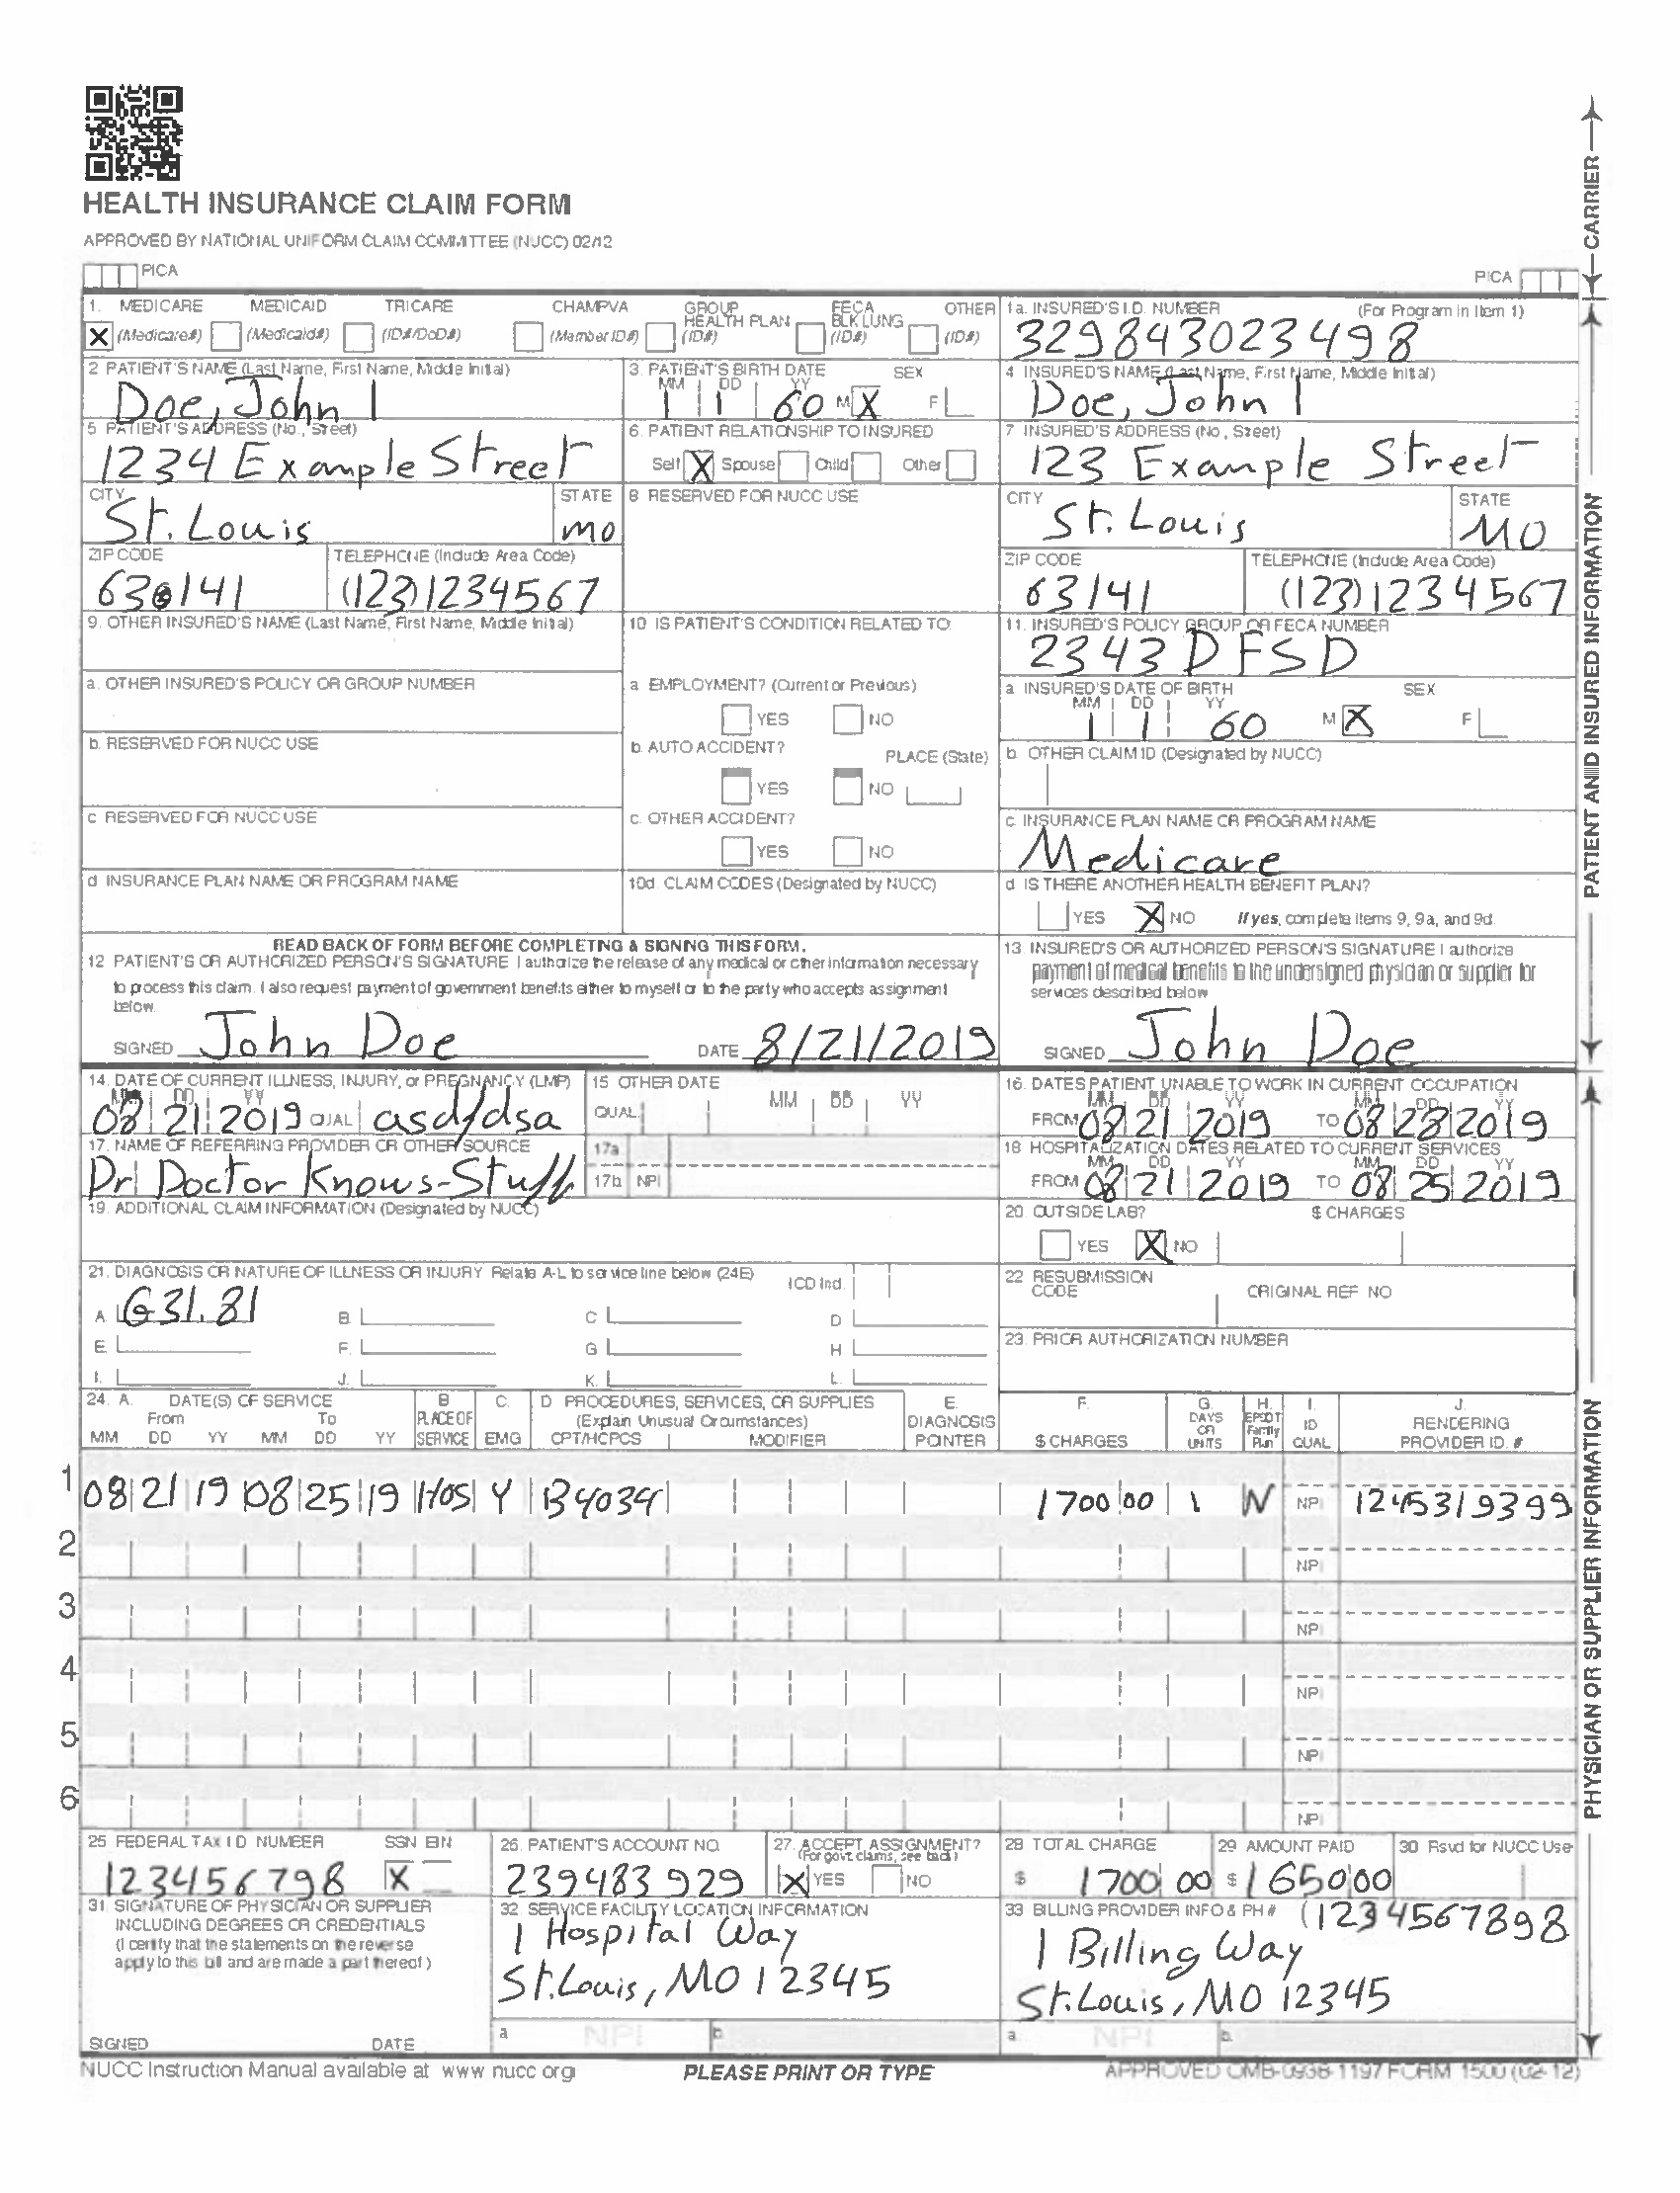 HEALTH INSURANCE CLAIM FORM
APPROVED BY NATIONAL UNIFORM CLAIM COMMITTEE (NUCC) 02/12
PICA
PICA
CARRIER
1. MEDICARE MEDICAID TRICARE CHAMPVA GROUP HEALTH PLAN FECA BLK LUNG OTHER
X (Medicare#) (Medicaid#) (ID#/DoD#) (Member ID#) (ID#) (ID#) (ID#)
1a. INSURED'S I.D. NUMBER (For Program in Item 1)
329843023498
2 PATIENT'S NAME (Last Name, First Name, Middle Initial)
Doe, John I
3. PATIENT'S BIRTH DATE SEX
MM DD YY
1 1 60 M X F
4 INSURED'S NAME (Last Name, First Name, Middle Initial)
Doe, John I
5 PATIENT'S ADDRESS (No., Street)
1234 Example Street
6. PATIENT RELATIONSHIP TO INSURED
Self X Spouse Child Other
7 INSURED'S ADDRESS (No., Street)
123 Example Street
CITY STATE
St. Louis MO
8 RESERVED FOR NUCC USE
CITY STATE
St. Louis MO
ZIP CODE TELEPHONE (Include Area Code)
63 141 (123)1234567
ZIP CODE TELEPHONE (Include Area Code)
63141 (123)1234567
9. OTHER INSURED'S NAME (Last Name, First Name, Middle Initial)
10 IS PATIENT'S CONDITION RELATED TO:
11. INSURED'S POLICY GROUP OR FECA NUMBER
2343DFSD
a. OTHER INSURED'S POLICY OR GROUP NUMBER
a EMPLOYMENT? (Current or Previous)
YES NO
a INSURED'S DATE OF BIRTH SEX
MM DD YY
1 1 60 M X F
b. RESERVED FOR NUCC USE
b. AUTO ACCIDENT? PLACE (State)
YES NO
b OTHER CLAIM ID (Designated by NUCC)
c RESERVED FOR NUCC USE
c. OTHER ACCIDENT?
YES NO
c. INSURANCE PLAN NAME OR PROGRAM NAME
Medicare
d INSURANCE PLAN NAME OR PROGRAM NAME
10d. CLAIM CODES (Designated by NUCC)
d IS THERE ANOTHER HEALTH BENEFIT PLAN?
YES X NO If yes, complete items 9, 9a, and 9d.
PATIENT AND INSURED INFORMATION
READ BACK OF FORM BEFORE COMPLETING & SIGNING THIS FORM.
12 PATIENT'S OR AUTHORIZED PERSON'S SIGNATURE I authorize the release of any medical or other information necessary
to process this claim. I also request payment of government benefits either to myself or to the party who accepts assignment
below.
SIGNED John Doe DATE 8/21/2019
13. INSURED'S OR AUTHORIZED PERSON'S SIGNATURE I authorize
payment of medical benefits to the undersigned physician or supplier for
services described below
SIGNED John Doe
14. DATE OF CURRENT ILLNESS, INJURY, or PREGNANCY (LMP)
MM DD YY
08 21 2019 QUAL asdfdsa
15 OTHER DATE
QUAL. MM DD YY
16. DATES PATIENT UNABLE TO WORK IN CURRENT OCCUPATION
MM DD YY MM DD YY
FROM 08 21 2019 TO 08 28 2019
17. NAME OF REFERRING PROVIDER OR OTHER SOURCE
Dr Doctor Knows-Stuff
17a
17b NPI
18 HOSPITALIZATION DATES RELATED TO CURRENT SERVICES
MM DD YY MM DD YY
FROM 08 21 2019 TO 08 25 2019
19. ADDITIONAL CLAIM INFORMATION (Designated by NUCC)
20. OUTSIDE LAB? $ CHARGES
YES X NO
21. DIAGNOSIS OR NATURE OF ILLNESS OR INJURY Relate A-L to service line below (24E) ICD Ind.
A. G31.81 B. C. D.
E. F. G. H.
I. J. K. L.
22 RESUBMISSION CODE ORIGINAL REF. NO
23. PRIOR AUTHORIZATION NUMBER
24. A. DATE(S) OF SERVICE B C. D PROCEDURES, SERVICES, OR SUPPLIES E. F. G. H. I. J.
From To PLACE OF (Explain Unusual Circumstances) DIAGNOSIS DAYS OR EPSDT Family ID RENDERING
MM DD YY MM DD YY SERVICE EMG CPT/HCPCS MODIFIER POINTER $ CHARGES UNITS Plan QUAL PROVIDER ID. #
1 08 21 19 08 25 19 HOS Y B4034 1700 00 1 N NPI 1245319399
2 NPI
3 NPI
4 NPI
5 NPI
6 NPI
PHYSICIAN OR SUPPLIER INFORMATION
25 FEDERAL TAX I.D NUMBER SSN EIN
123456798 X
26. PATIENT'S ACCOUNT NO.
239483929
27. ACCEPT ASSIGNMENT?
(For govt. claims, see back)
X YES NO
28 TOTAL CHARGE
$ 1700 00
29 AMOUNT PAID
$ 1650 00
30 Rsvd for NUCC Use
31 SIGNATURE OF PHYSICIAN OR SUPPLIER
INCLUDING DEGREES OR CREDENTIALS
(I certify that the statements on the reverse
apply to this bill and are made a part thereof.)
SIGNED DATE
32. SERVICE FACILITY LOCATION INFORMATION
1 Hospital Way
St.Louis, MO 12345
a NPI b
33 BILLING PROVIDER INFO & PH # (1234567898
1 Billing Way
St.Louis, MO 12345
a. NPI b.
NUCC Instruction Manual available at www nucc org
PLEASE PRINT OR TYPE
APPROVED OMB-0938-1197 FORM 1500 (02-12)